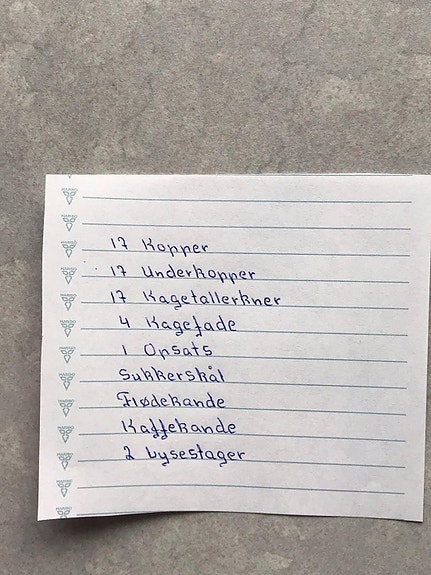 17 Kopper
17 Underkopper
17 Kagetallerkner
4 Kagefade
1 Opsats
Sukkerskål
Flødekande
Kaffekande
2 Lysestager